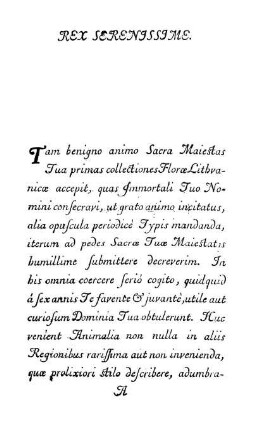 REX SERENISSIME.
Tam benigno animo Sacra Maiestas
Tua primas collectiones Floræ Lithva-
nicæ accepit, quas Immortali Tuo No-
mini conſecravi, ut grato animo incitatus,
alia opuſcula periodicè Typis mandanda,
iterum ad pedes Sacræ Tuæ Maieſtatis
humillime ſubmittere decreverim. In
his omnia coercere ſeriò cogito, quidquid
á ſex annis Te favente & juvante, utile aut
curioſum Dominia Tua obtulerunt. Huc
venient Animalia non nulla in aliis
Regionibus rariſſima aut non invenienda,
quæ prolixiori ſtilo deſcribere, adumbra-
A